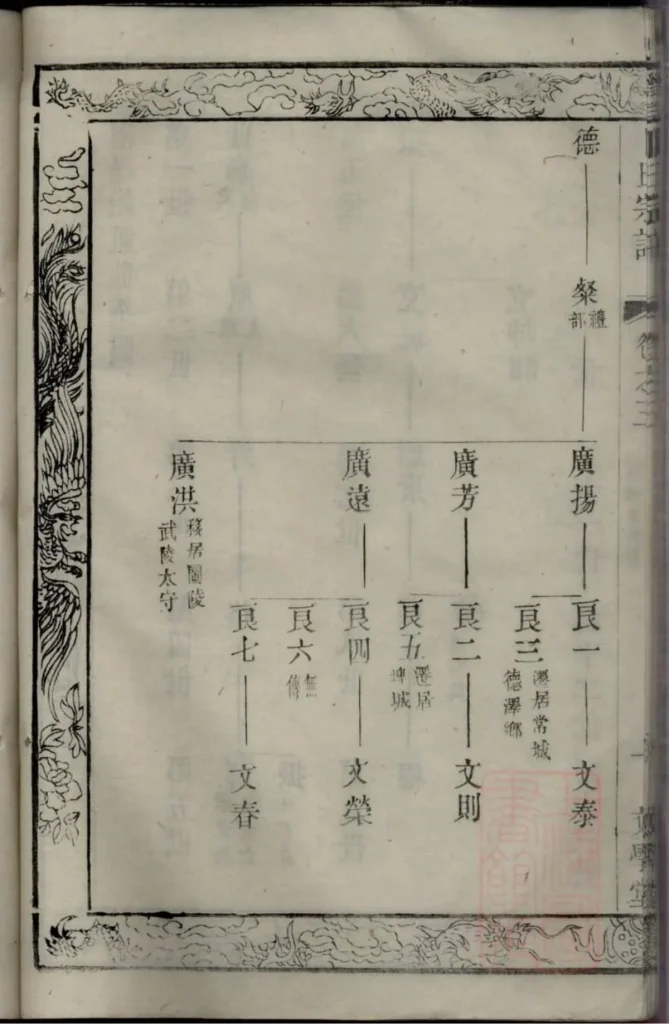 氏宗譜
卷之三
德
粲
禮部
廣揚
廣芳
廣遠
廣洪
移居蘭陵
武陵太守
良一
良三
遷居常城
德澤鄉
良二
良五
遷居
埤城
良四
良六
無傳
良七
文泰
文則
文榮
文春